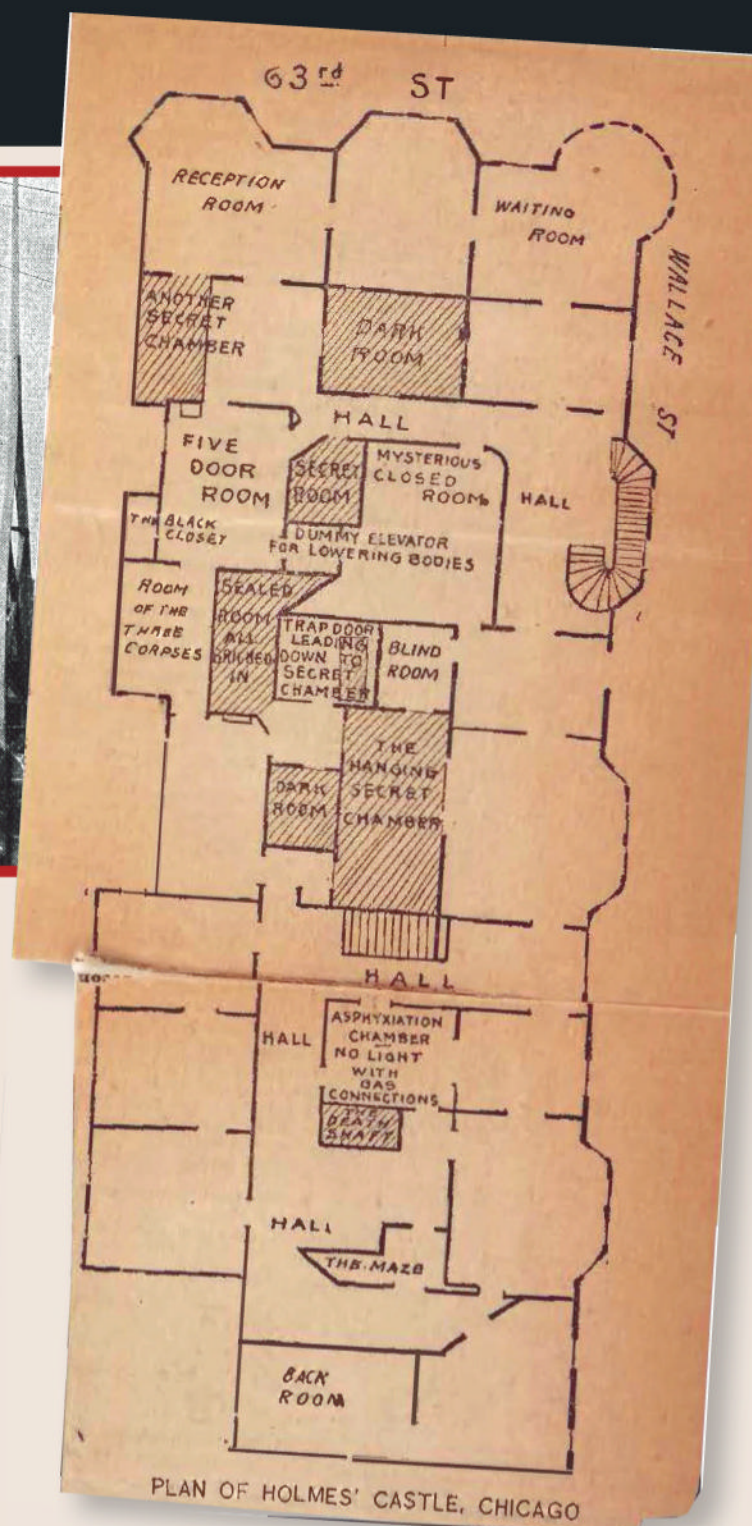 63rd ST
RECEPTION
ROOM
WAITING
ROOM
WALLACE ST
ANOTHER
SECRET
CHAMBER
DARK
ROOM
HALL
FIVE
DOOR
ROOM
SECRET
ROOM
MYSTERIOUS
CLOSED
ROOM
HALL
THE BLACK
CLOSET
DUMMY ELEVATOR
FOR LOWERING BODIES
ROOM
OF THE
THREE
CORPSES
SEALED
ROOM
ALL
BRICKED
IN
TRAP DOOR
LEADING
DOWN TO
SECRET
CHAMBER
BLIND
ROOM
THE
HANGING
SECRET
CHAMBER
DARK
ROOM
HALL
HALL
ASPHYXIATION
CHAMBER
NO LIGHT
WITH
GAS
CONNECTIONS
THE
DEATH
SHAFT
HALL
THE MAZE
BACK
ROOM
PLAN OF HOLMES' CASTLE, CHICAGO